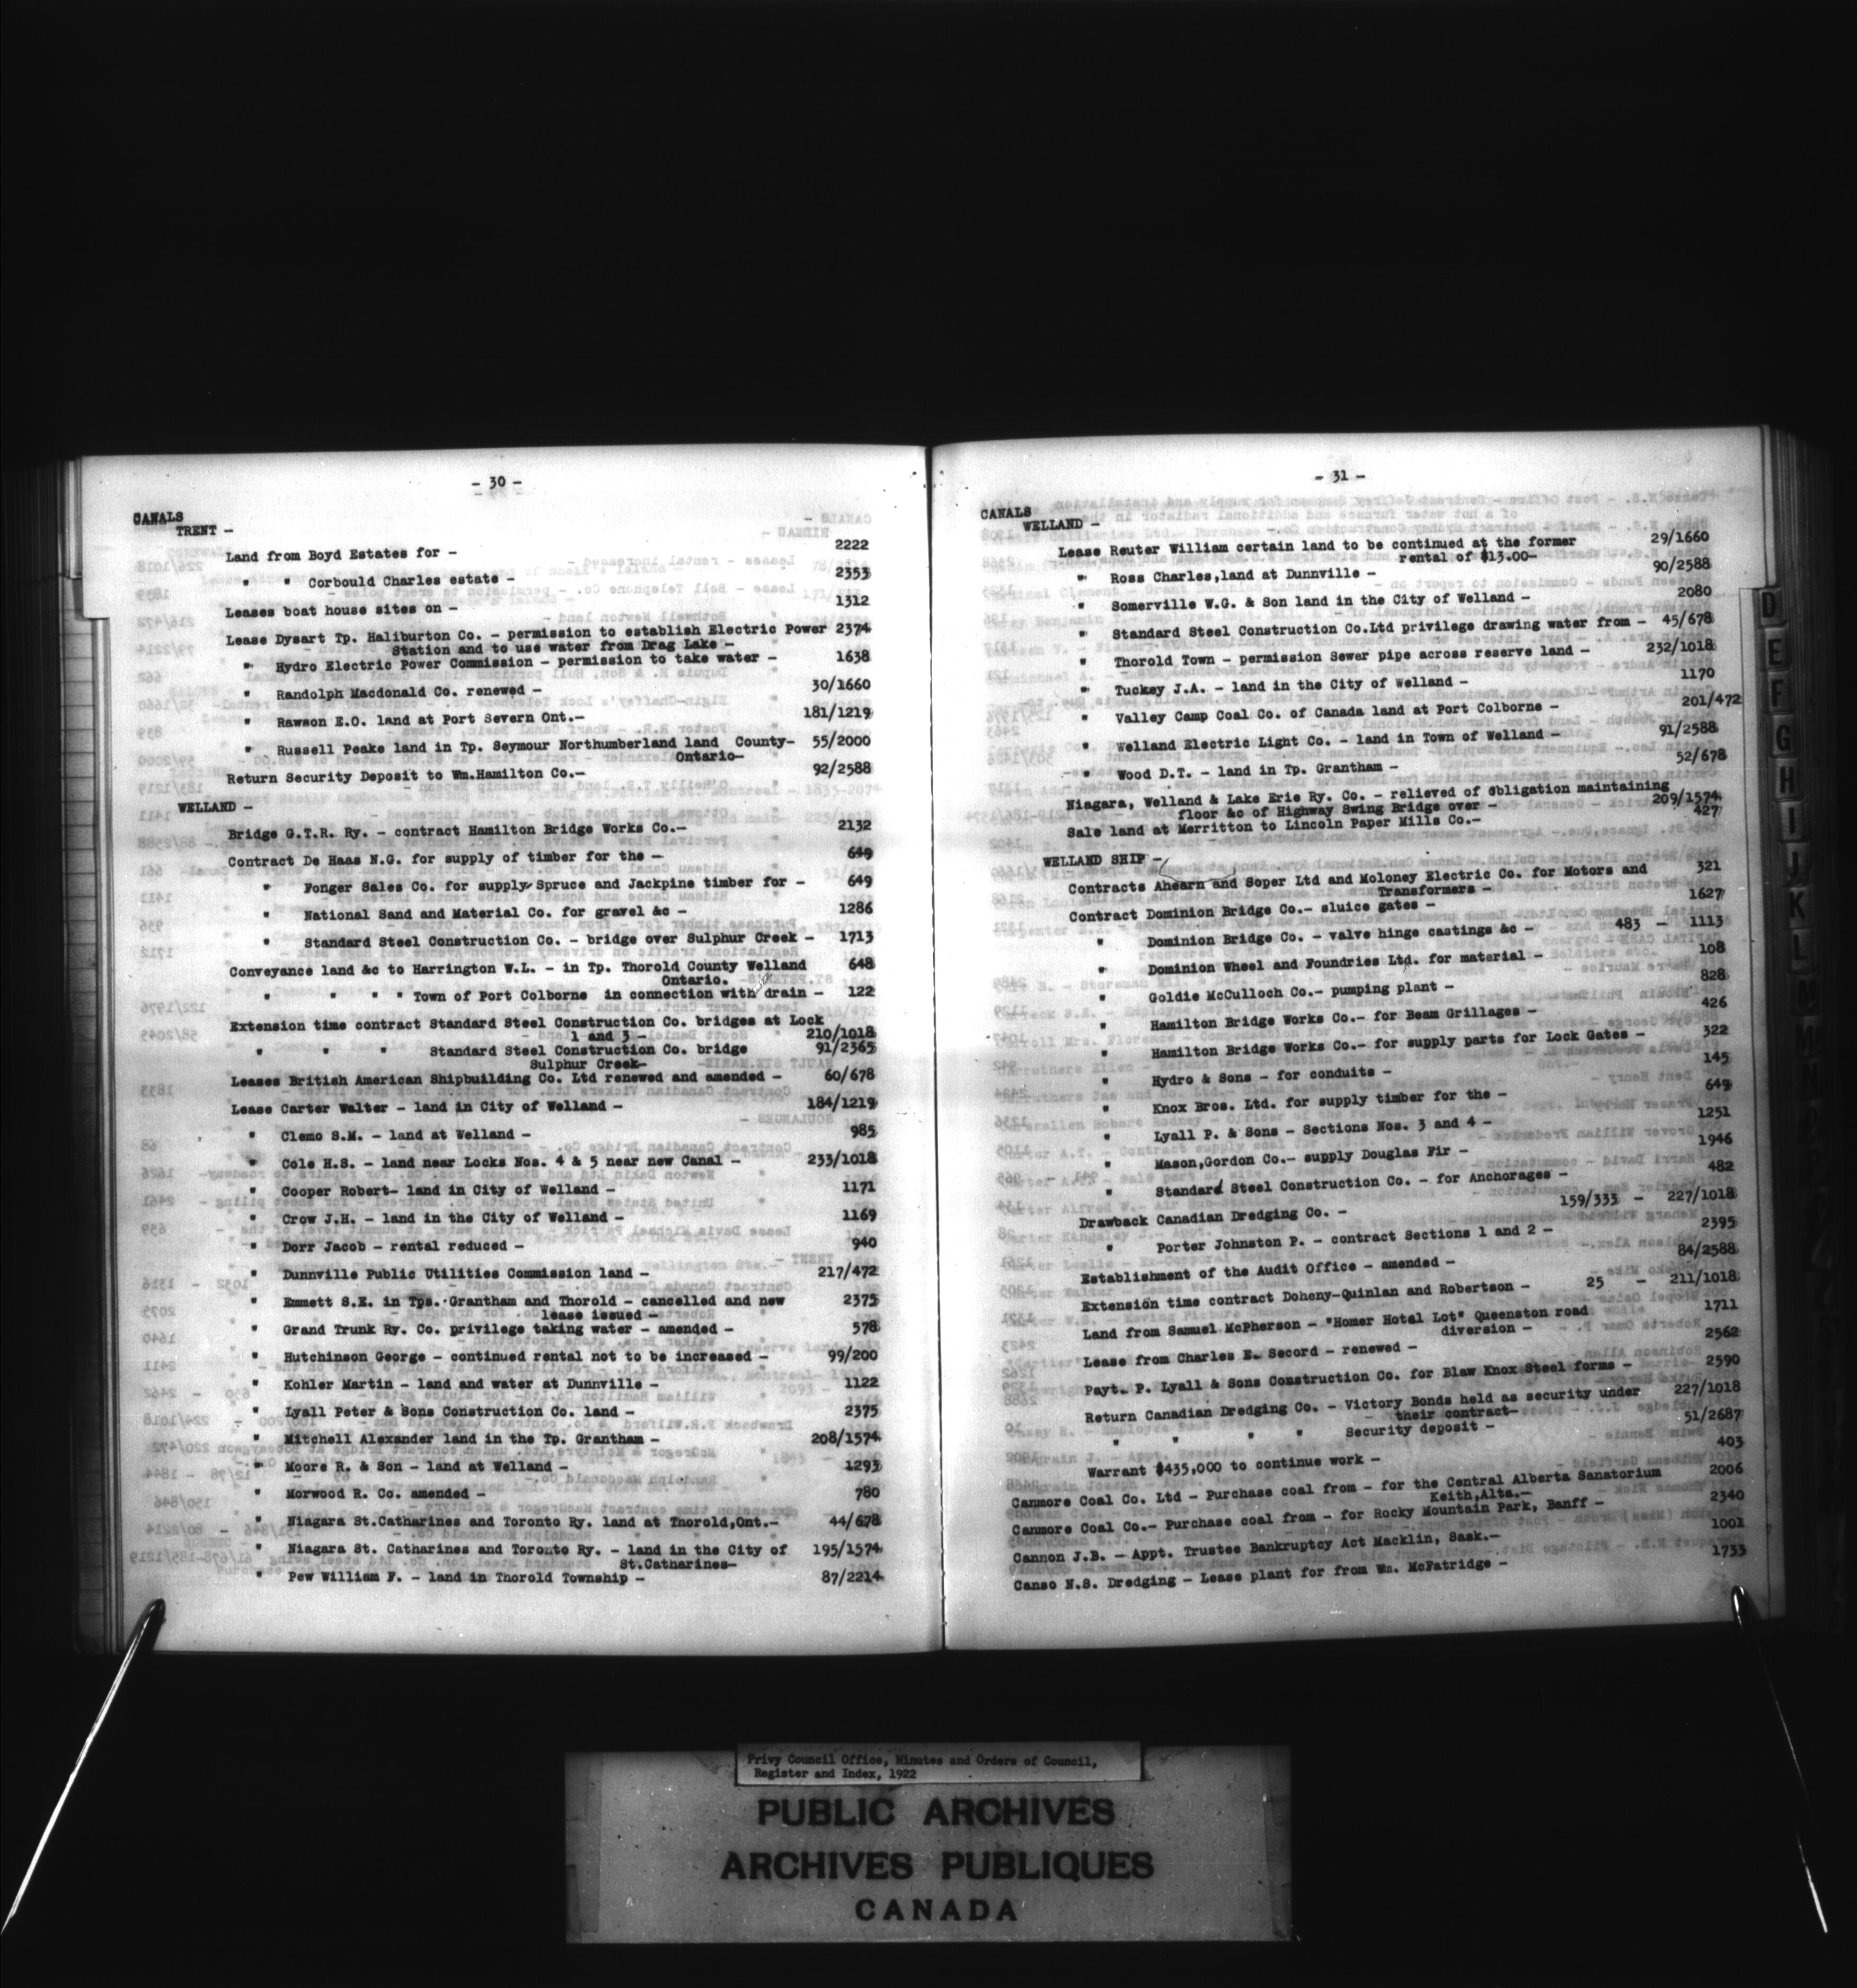 - 30 -
CANALS
TRENT -
Land from Boyd Estates for - 2222
" " Corbould Charles estate - 2353
Leases boat house sites on - 1312
Lease Dysart Tp. Haliburton Co. - permission to establish Electric Power 2374
Station and to use water from Drag Lake -
" Hydro Electric Power Commission - permission to take water - 1638
" Randolph Macdonald Co. renewed - 30/1660
" Rawson E.O. land at Port Severn Ont.- 181/1219
" Russell Peake land in Tp. Seymour Northumberland land County- 55/2000
Ontario-
Return Security Deposit to Wm.Hamilton Co.- 92/2588
WELLAND -
Bridge G.T.R. Ry. - contract Hamilton Bridge Works Co.- 2132
Contract De Haas N.G. for supply of timber for the - 649
" Fonger Sales Co. for supply Spruce and Jackpine timber for - 649
" National Sand and Material Co. for gravel &c - 1286
" Standard Steel Construction Co. - bridge over Sulphur Creek - 1713
Conveyance land &c to Harrington W.L. - in Tp. Thorold County Welland 648
Ontario.
" " " " Town of Port Colborne in connection with drain - 122
Extension time contract Standard Steel Construction Co. bridges at Lock
1 and 3 - 210/1018
" " " Standard Steel Construction Co. bridge 91/2365
Sulphur Creek-
Leases British American Shipbuilding Co. Ltd renewed and amended - 60/678
Lease Carter Walter - land in City of Welland - 184/1219
" Clemo S.M. - land at Welland - 985
" Cole H.S. - land near Locks Nos. 4 & 5 near new Canal - 233/1018
" Cooper Robert- land in City of Welland - 1171
" Crow J.H. - land in the City of Welland - 1169
" Dorr Jacob - rental reduced - 940
" Dunnville Public Utilities Commission land - 217/472
" Emmett S.E. in Tps. Grantham and Thorold - cancelled and new 2375
lease issued -
" Grand Trunk Ry. Co. privilege taking water - amended - 578
" Hutchinson George - continued rental not to be increased - 99/200
" Kohler Martin - land and water at Dunnville - 1122
" Lyall Peter & Sons Construction Co. land - 2375
" Mitchell Alexander land in the Tp. Grantham - 208/1574
" Moore R. & Son - land at Welland - 1293
" Morwood R. Co. amended - 780
" Niagara St.Catharines and Toronto Ry. land at Thorold,Ont.- 44/678
" Niagara St. Catharines and Toronto Ry. - land in the City of 195/1574
St.Catharines-
" Pew William F. - land in Thorold Township - 87/2214
- 31 -
CANALS
WELLAND -
Lease Reuter William certain land to be continued at the former 29/1660
rental of $13.00-
" Ross Charles,land at Dunnville - 90/2588
" Somerville W.G. & Son land in the City of Welland - 2080
" Standard Steel Construction Co.Ltd privilege drawing water from - 45/678
" Thorold Town - permission Sewer pipe across reserve land - 232/1018
" Tuckey J.A. - land in the City of Welland - 1170
" Valley Camp Coal Co. of Canada land at Port Colborne - 201/472
" Welland Electric Light Co. - land in Town of Welland - 91/2588
" Wood D.T. - land in Tp. Grantham - 52/678
Niagara, Welland & Lake Erie Ry. Co. - relieved of obligation maintaining
floor &c of Highway Swing Bridge over - 209/1574
Sale land at Merritton to Lincoln Paper Mills Co.- 427
WELLAND SHIP -
Contracts Ahearn and Soper Ltd and Moloney Electric Co. for Motors and 321
Transformers -
Contract Dominion Bridge Co.- sluice gates - 1627
" Dominion Bridge Co. - valve hinge castings &c - 483 - 1113
" Dominion Wheel and Foundries Ltd. for material - 108
" Goldie McCulloch Co.- pumping plant - 828
" Hamilton Bridge Works Co.- for Beam Grillages - 426
" Hamilton Bridge Works Co.- for supply parts for Lock Gates - 322
" Hydro & Sons - for conduits - 145
" Knox Bros. Ltd. for supply timber for the - 649
" Lyall P. & Sons - Sections Nos. 3 and 4 - 1251
" Mason,Gordon Co.- supply Douglas Fir - 1946
" Standard Steel Construction Co. - for Anchorages - 482
Drawback Canadian Dredging Co. - 159/333 - 227/1018
" Porter Johnston P. - contract Sections 1 and 2 - 2395
Establishment of the Audit Office - amended - 84/2588
Extension time contract Doheny-Quinlan and Robertson - 25 - 211/1018
Land from Samuel McPherson - "Homer Hotel Lot" Queenston road 1711
diversion -
Lease from Charles E. Secord - renewed - 2562
Payt. P. Lyall & Sons Construction Co. for Blaw Knox Steel forms - 2590
Return Canadian Dredging Co. - Victory Bonds held as security under 227/1018
their contract-
" " " " Security deposit - 51/2687
Warrant $435,000 to continue work - 403
Canmore Coal Co. Ltd - Purchase coal from - for the Central Alberta Sanatorium 2006
Keith,Alta.-
Canmore Coal Co.- Purchase coal from - for Rocky Mountain Park, Banff - 2340
Cannon J.B. - Appt. Trustee Bankruptcy Act Macklin, Sask.- 1001
Canso N.S. Dredging - Lease plant for from Wm. McFatridge - 1733
D
E
F
G
H
I
J
K
L
M
Privy Council Office, Minutes and Orders of Council,
Register and Index, 1922
PUBLIC ARCHIVES
ARCHIVES PUBLIQUES
CANADA